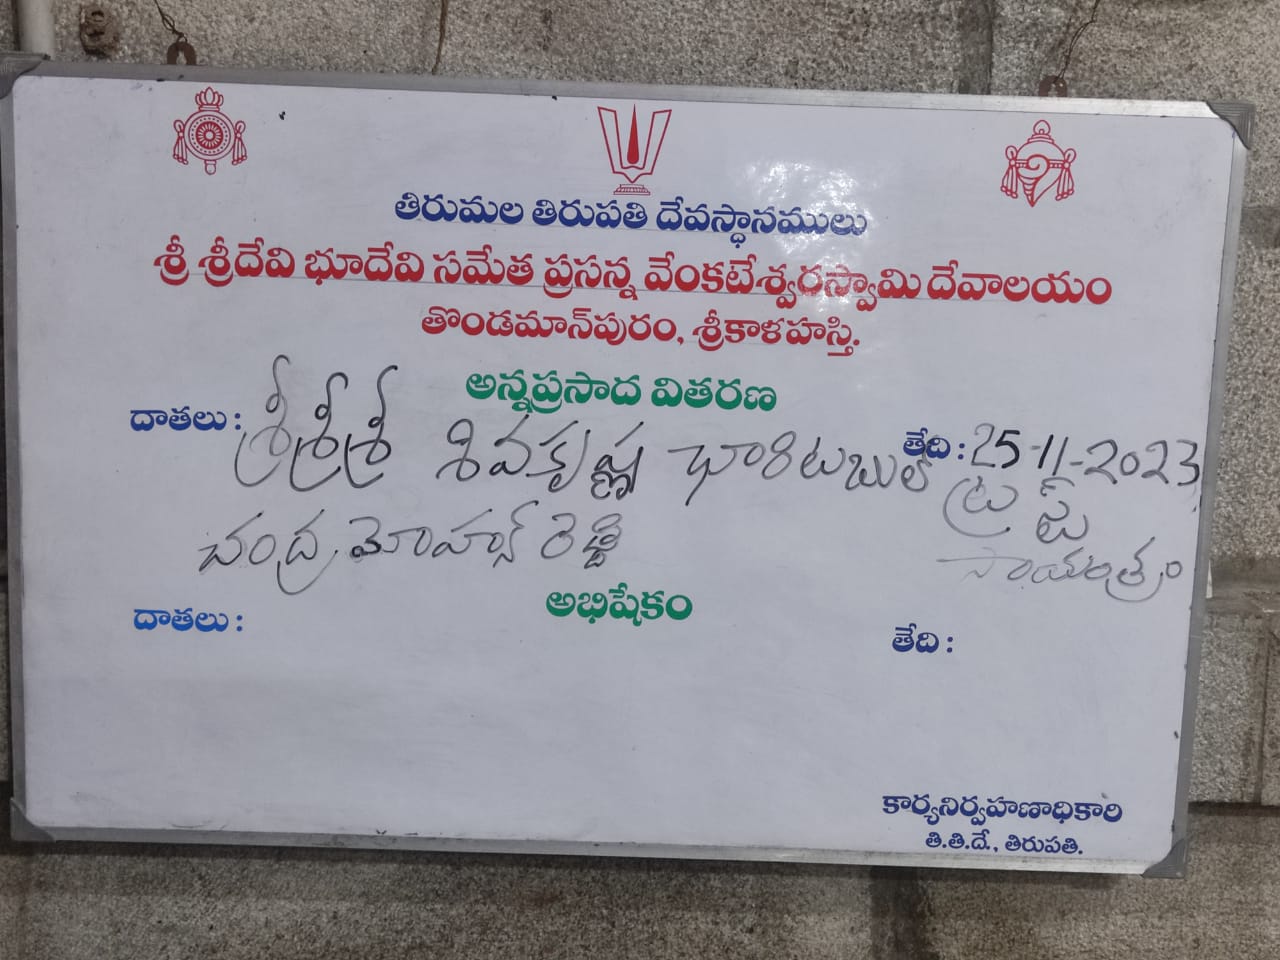 తిరుమల తిరుపతి దేవస్థానములు
శ్రీ శ్రీదేవి భూదేవి సమేత ప్రసన్న వేంకటేశ్వరస్వామి దేవాలయం
తొండమాన్‌పురం, శ్రీకాళహస్తి.
అన్నప్రసాద వితరణ
దాతలు : శ్రీశ్రీశ్రీ శివకృష్ణ ఛారిటబుల్ తేది : 25-11-2023
ట్రస్టు
చంద్ర మోహన్ రెడ్డి సాయంత్రం
అభిషేకం
దాతలు : తేది :
కార్యనిర్వహణాధికారి
తి.తి.దే., తిరుపతి.